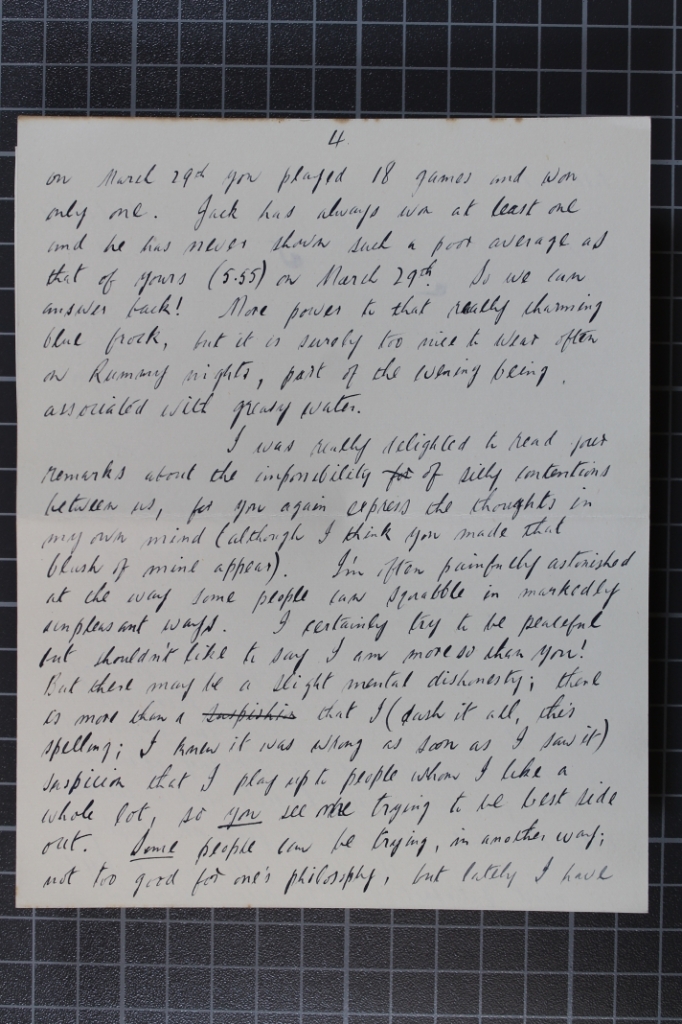 4
on March 29th you played 18 games and won
only one. Jack has always won at least one
and he has never shown such a poor average as
that of yours (5.55) on March 29th. So we can
answer back! More power to that really charming
blue frock, but it is surely too nice to wear often
on Rummy nights, part of the evening being
associated with greasy water.
I was really delighted to read your
remarks about the impossibility for of silly contentions
between us, for you again express the thoughts in
my own mind (although I think you made that
blush of mine appear). I'm often painfully astonished
at the way some people can squabble in markedly
unpleasant ways. I certainly try to be peaceful
but shouldn't like to say I am more so than you!
But there may be a slight mental dishonesty; there
is more than a suspishin that I (dash it all, this
spelling; I knew it was wrong as soon as I saw it)
suspicion that I play up to people whom I like a
whole lot, so you see me trying to be best side
out. Some people can be trying, in another way;
not too good for one's philosophy, but lately I have